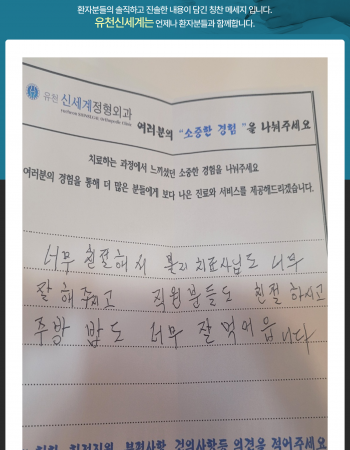 환자분들의 솔직하고 진솔한 내용이 담긴 칭찬 메세지 입니다.
유천신세계는 언제나 환자분들과 함께합니다.
유천 신세계정형외과
여러분의 "소중한 경험"을 나눠주세요
치료하는 과정에서 느끼셨던 소중한 경험을 나눠주세요
여러분의 경험을 통해 더 많은 분들에게 보다 나은 진료와 서비스를 제공해드리겠습니다.
너무 친절해서 물리치료사님도 너무
잘 해주시고 직원분들도 친절 하시고
주방 밥도 너무 잘 먹어읍니다
불편사항, 건의사항등 의견을 적어주세요